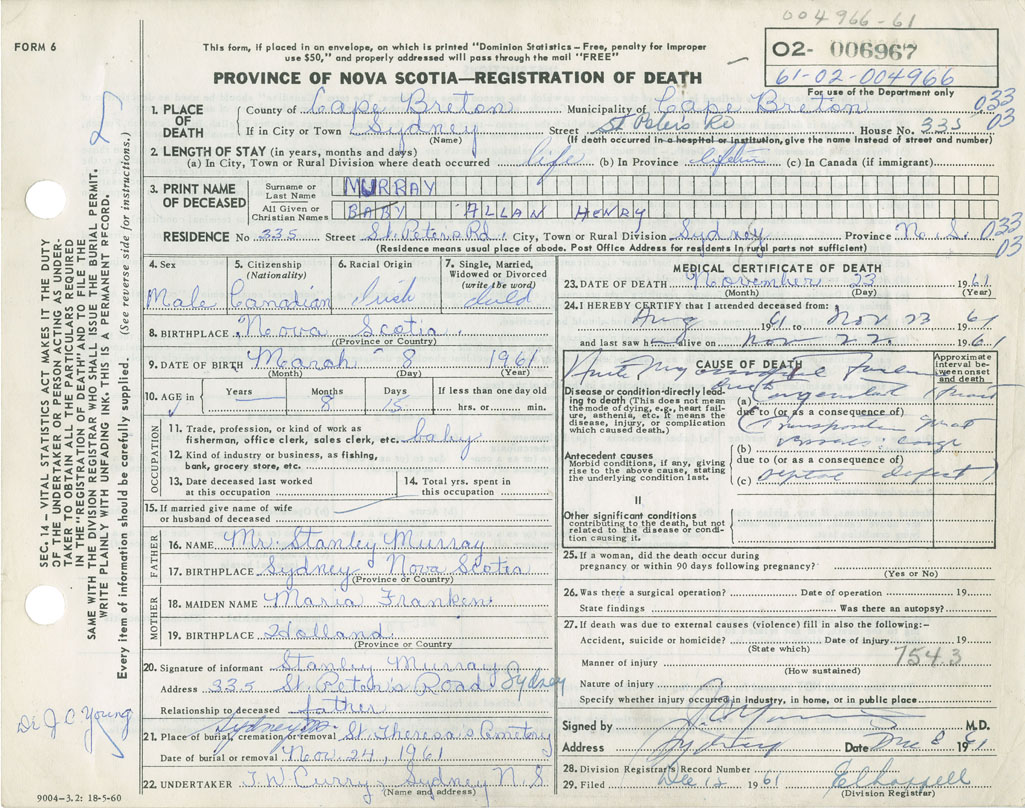 004966-61
FORM 6
This form, if placed in an envelope, on which is printed "Dominion Statistics – Free, penalty for improper
use $50," and properly addressed will pass through the mail "FREE"
02- 006967
61-02-004966
For use of the Department only
PROVINCE OF NOVA SCOTIA—REGISTRATION OF DEATH
1. PLACE OF DEATH County of Cape Breton Municipality of Cape Breton 033
If in City or Town Sydney (Name) Street St Peters Rd House No. 335 03
(If death occurred in a hospital or institution, give the name instead of street and number)
2. LENGTH OF STAY (in years, months and days)
(a) In City, Town or Rural Division where death occurred life (b) In Province lifetime (c) In Canada (if immigrant)
3. PRINT NAME OF DECEASED Surname or Last Name MURRAY
All Given or Christian Names BABY ALLAN HENRY
RESIDENCE No 335 Street St. Peters Rd. City, Town or Rural Division Sydney Province No. S. 033
(Residence means usual place of abode. Post Office Address for residents in rural parts not sufficient) 03
4. Sex Male
5. Citizenship (Nationality) Canadian
6. Racial Origin Irish
7. Single, Married, Widowed or Divorced (write the word)
8. BIRTHPLACE Nova Scotia
(Province or Country)
9. DATE OF BIRTH March 8 1961
(Month) (Day) (Year)
10. AGE in Years Months 8 Days 15 If less than one day old hrs. or min.
OCCUPATION
11. Trade, profession, or kind of work as
fisherman, office clerk, sales clerk, etc. baby
12. Kind of industry or business, as fishing,
bank, grocery store, etc.
13. Date deceased last worked at this occupation
14. Total yrs. spent in this occupation
15. If married give name of wife
or husband of deceased
FATHER
16. NAME Mr. Stanley Murray
17. BIRTHPLACE Sydney Nova Scotia
(Province or Country)
MOTHER
18. MAIDEN NAME Maria Franken
19. BIRTHPLACE Holland
(Province or Country
20. Signature of informant Stanley Murray
Address 335 St. Peter's Road Sydney
Relationship to deceased father
21. Place of burial, cremation or removal St. Theresa's Cemetery
Date of burial or removal Nov. 24, 1961
22. UNDERTAKER T.W. Curry - Sydney N.S.
(Name and address)
9004–3.2: 18-5-60
MEDICAL CERTIFICATE OF DEATH
23. DATE OF DEATH November 23 1961
(Month) (Day) (Year)
24. I HEREBY CERTIFY that I attended deceased from;
Aug 1961 to Nov 23 1961
and last saw h alive on Nov 22 1961
CAUSE OF DEATH
Approximate interval between onset and death
Disease or condition directly leading to death (This does not mean the mode of dying, e.g., heart failure, asthenia, etc. It means the disease, injury, or complication which caused death.)
(a) Congenital
due to (or as a consequence of)
(b)
due to (or as a consequence of)
(c) Septal defect
Antecedent causes
Morbid conditions, if any, giving rise to the above cause, stating the underlying condition last.
II
Other significant conditions
contributing to the death, but not related to the disease or condition causing it.
25. If a woman, did the death occur during
pregnancy or within 90 days following pregnancy?
(Yes or No)
26. Was there a surgical operation? Date of operation 19
State findings Was there an autopsy?
27. If death was due to external causes (violence) fill in also the following:–
Accident, suicide or homicide? Date of injury 19
(State which) 754.3
Manner of injury
(How sustained)
Nature of injury
Specify whether injury occurred in industry, in home, or in public place
Signed by M.D.
Address Sydney Date Dec 8 1961
28. Division Registrar's Record Number
29. Filed Dec 12 1961
(Division Registrar)
SEC. 14 – VITAL STATISTICS ACT MAKES IT THE DUTY
OF THE UNDERTAKER OR PERSON ACTING AS UNDER-
TAKER TO OBTAIN ALL THE PARTICULARS REQUIRED
IN THE "REGISTRATION OF DEATH" AND TO FILE THE
SAME WITH THE DIVISION REGISTRAR WHO SHALL ISSUE THE BURIAL PERMIT.
WRITE PLAINLY WITH UNFADING INK. THIS IS A PERMANENT RECORD.
Every item of information should be carefully supplied. (See reverse side for instructions.)
Dr. J. C. Young